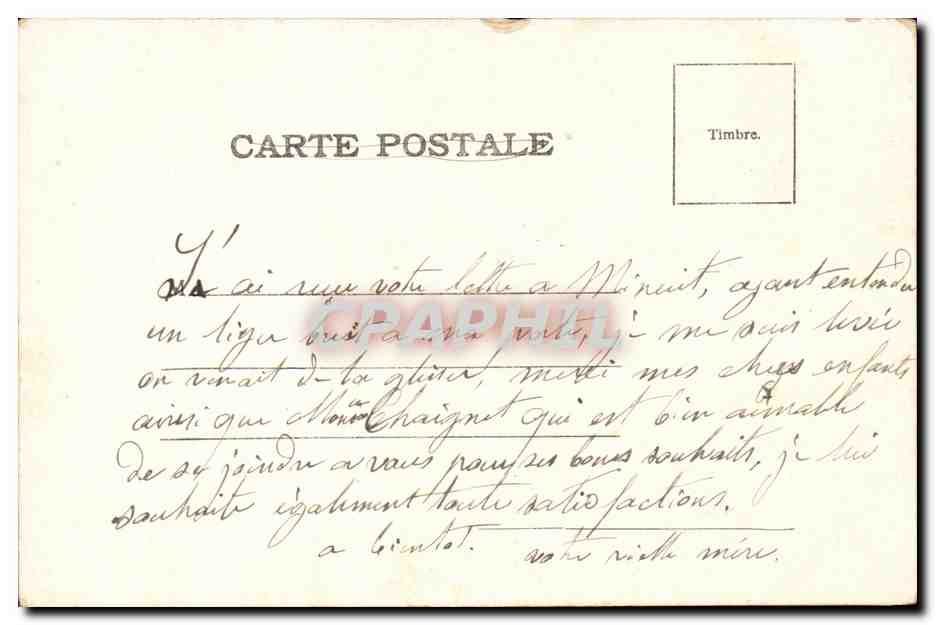 CARTE POSTALE
Timbre.
J'
ai recu votre lettre a Minuit, ayant entendu
un liger bruit a ma porte, je me suis levée
on venait de la glisser, merci mes chers enfants
ainsi que Chaignet qui est bien aimable
de se joindre a vous pour ses bons souhaits, je lui
souhaite également toute satisfactions.
a bientot. votre vieille mére.
CPAPHIL